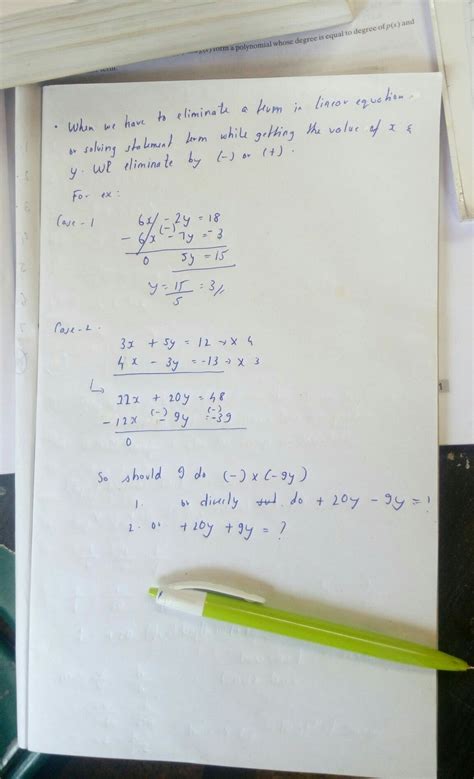 form a polynomial whose degree is equal to degree of p(x) and
• When we have to eliminate a term in linear equation.
or solving statement term while getting the value of x &
y. We eliminate by (-) or (+).
For ex:
Case - 1
6x - 2y = 18
- 6x (-) - 7y = 3
0 5y = 15
y = 15/5 = 3//
Case - 2.
3x + 5y = 12 → x 4
4x - 3y = -13 → x 3
↳ 12x + 20y = 48
- 12x (-) - 9y (-) = -39
0
So should I do (-) x (-9y)
1. or directly do + 20y - 9y = ?
2. or +20y + 9y = ?
1